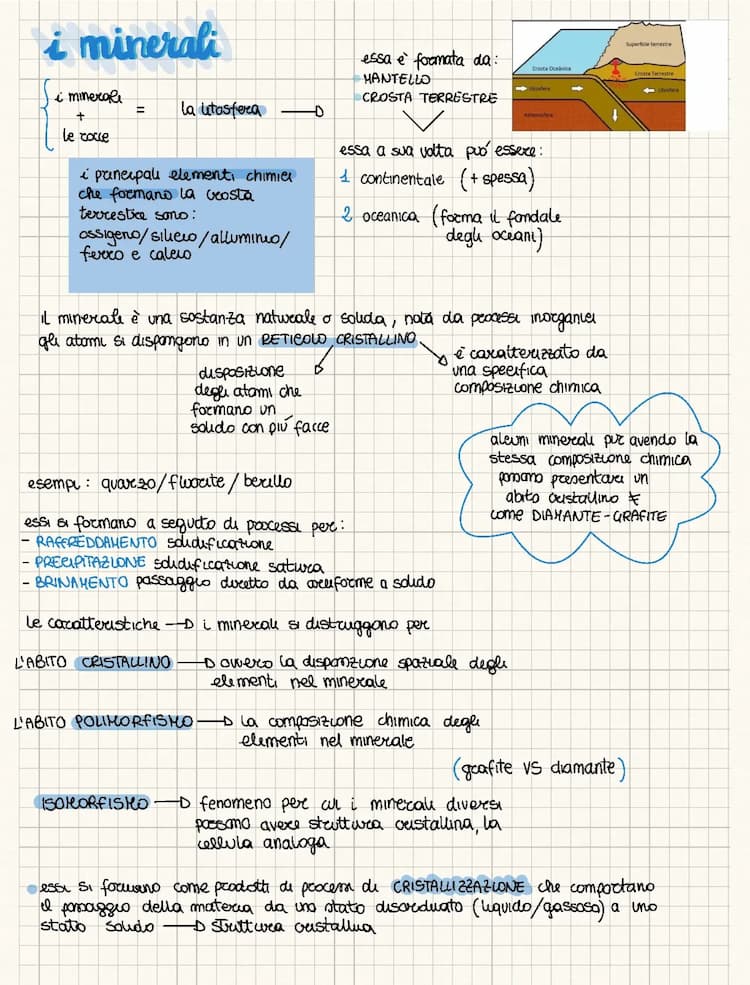 i minerali
i minerali
+
le rocce
=
la litosfera
essa è formata da:
MANTELLO
CROSTA TERRESTRE
Superficie terrestre
Crosta Oceanica
Crosta Terrestre
Litosfera
Litosfera
Astenosfera
essa a sua volta può essere:
1 continentale (+ spessa)
2 oceanica (forma il fondale
degli oceani)
i principali elementi chimici
che formano la crosta
terrestre sono:
ossigeno/silicio/alluminio/
ferro e calcio
il minerale è una sostanza naturale o solida, nota da processi inorganici
gli atomi si dispongono in un RETICOLO CRISTALLINO
disposizione
degli atomi che
formano un
solido con più facce
è caratterizzato da
una specifica
composizione chimica
alcuni minerali pur avendo la
stessa composizione chimica
possono presentare un
abito cristallino ≠
come DIAMANTE-GRAFITE
esempi: quarzo/fluorite/berillo
essi si formano a seguito di processi per:
- RAFFREDDAMENTO solidificazione
- PRECIPITAZIONE solidificazione satura
- BRINAMENTO passaggio diretto da aeriforme a solido
le caratteristiche → i minerali si distruggono per
L'ABITO CRISTALLINO → ovvero la disposizione spaziale degli
elementi nel minerale
L'ABITO POLIMORFISMO → la composizione chimica degli
elementi nel minerale
(grafite VS diamante)
ISOMORFISMO → fenomeno per cui i minerali diversi
possano avere struttura cristallina, la
cellula analoga
essi si formano come prodotti di processi di CRISTALLIZZAZIONE che comportano
il passaggio della materia da uno stato disordinato (liquido/gassoso) a uno
stato solido → struttura cristallina